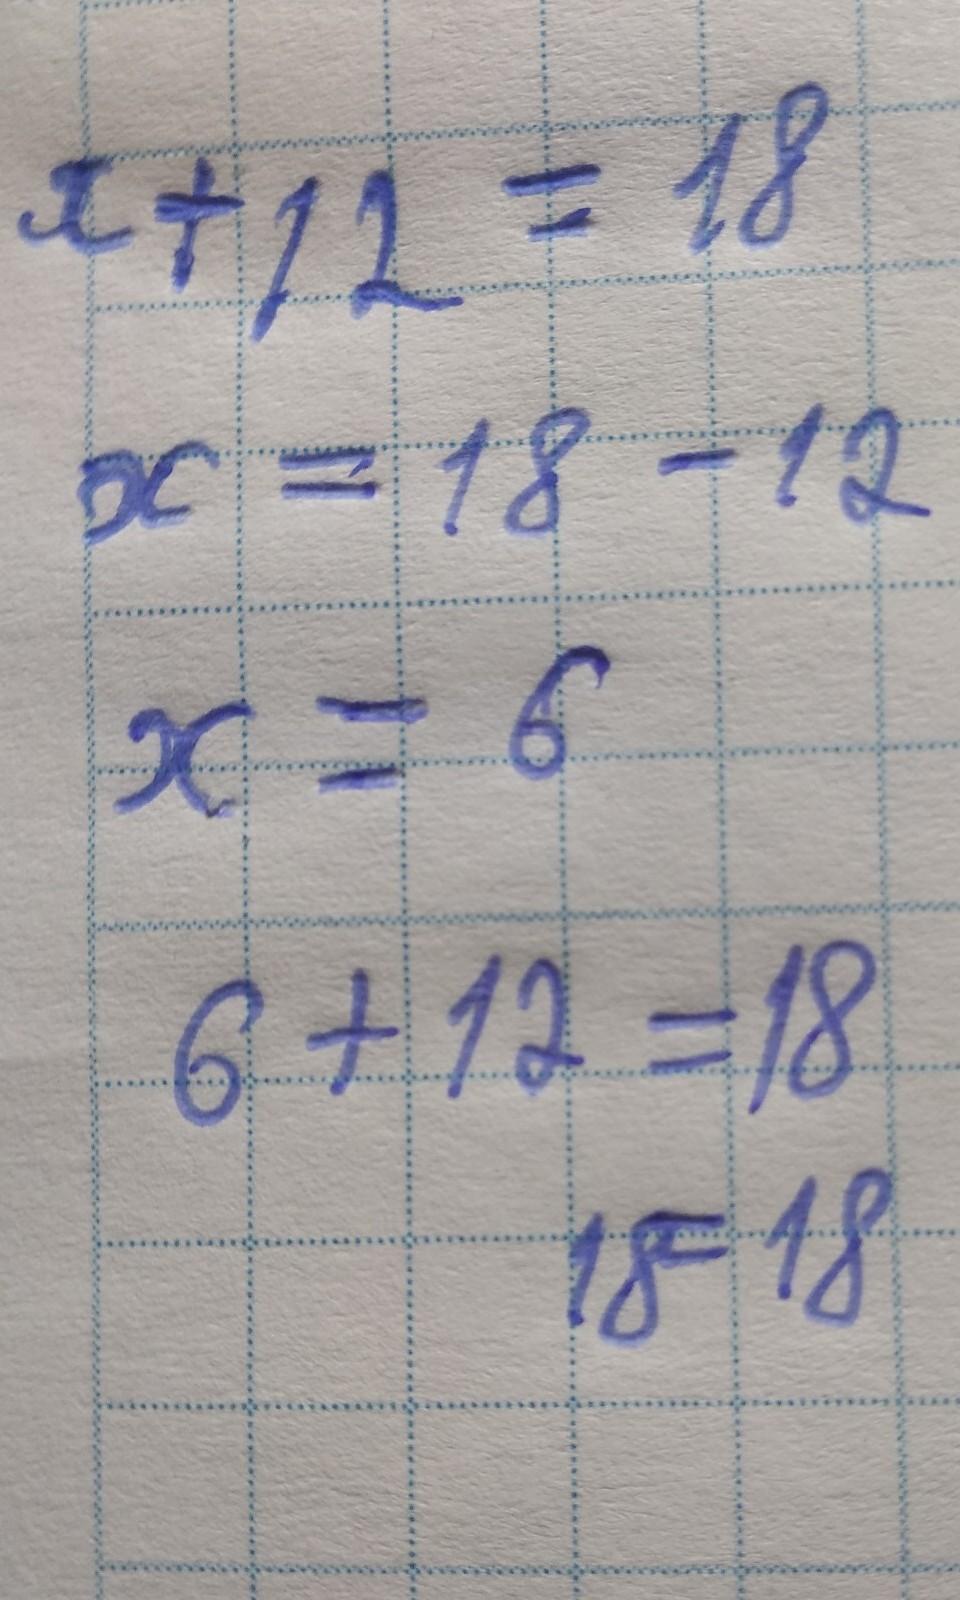 x + 12 = 18
x = 18 - 12
x = 6
6 + 12 = 18
18 = 18